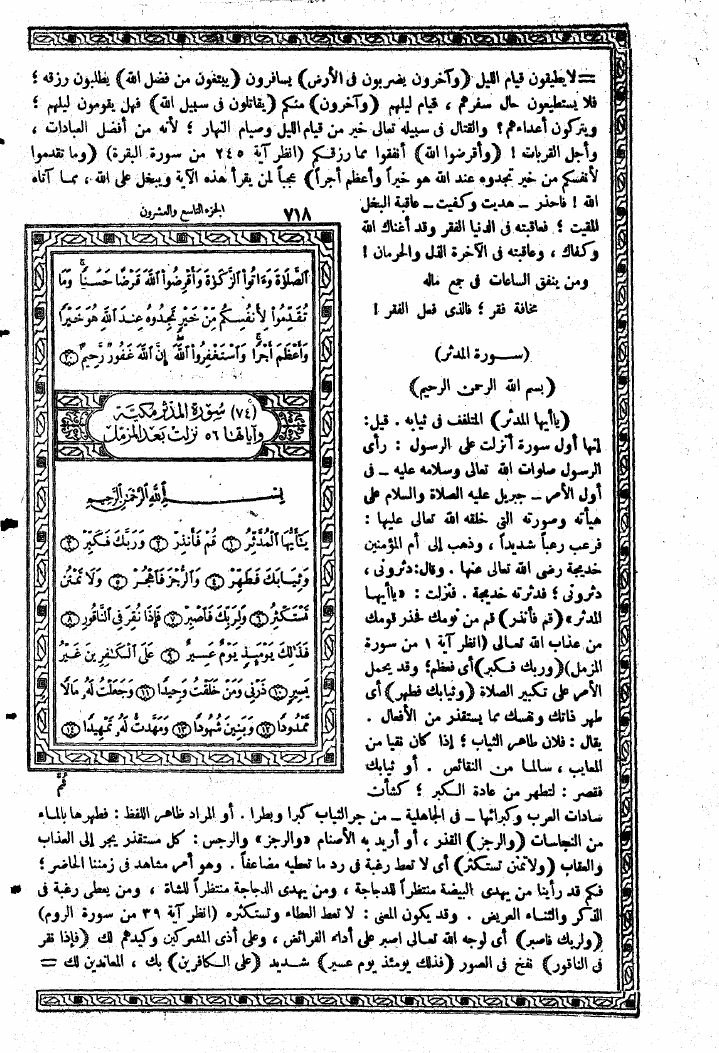 = لا يطيقون قيام الليل (وآخرون يضربون فى الأرض) يسافرون (يبتغون من فضل الله) يطلبون رزقه ؛
فلا يستطيعون حال سفرهم ، قيام ليلهم (وآخرون) منكم (يقاتلون فى سبيل الله) فهل يقومون ليلهم ؛
ويتركون أعداءهم ؟ والقتال فى سبيله تعالى خير من قيام الليل وصيام النهار ؛ لأنه من أفضل العبادات ،
وأجل القربات ! (وأقرضوا الله) أنفقوا مما رزقكم (انظر آية ٢٤٥ من سورة البقرة) (وما تقدموا
لأنفسكم من خير تجدوه عند الله هو خيراً وأعظم أجراً) عجباً لمن يقرأ هذه الآية ويبخل على الله ، مما آتاه
الله ! فاحذر ـ هديت وكفيت ـ عاقبة البخل
المقيت ؛ فعاقبته فى الدنيا الفقر وقد أغناك الله
وكفاك ، وعاقبته فى الآخرة الذل والحرمان !
ومن ينفق الساعات فى جمع ماله
مخافة فقر ؛ فالذى فعل الفقر !
(سورة المدثر)
(بسم الله الرحمن الرحيم)
(ياأيها المدثر) المتلفف فى ثيابه . قيل :
إنها أول سورة أنزلت على الرسول : رأى
الرسول صلوات الله تعالى وسلامه عليه ـ فى
أول الأمر ـ جبريل عليه الصلاة والسلام على
هيأته وصورته التى خلقه الله تعالى عليها :
فرعب رعباً شديداً ، وذهب إلى أم المؤمنين
خديجة رضى الله تعالى عنها . وقال : دثرونى ،
دثرونى ؛ فدثرته خديجة . فنزلت : «ياأيها
المدثر» (قم فأنذر) قم من نومك فحذر قومك
من عذاب الله تعالى (انظر آية ١ من سورة
المزمل) (وربك فكبر) أى فعظم ؛ وقد يحمل
الأمر على تكبير الصلاة (وثيابك فطهر) أى
طهر ذاتك ونفسك مما يستقذر من الأفعال .
يقال : فلان طاهر الثياب ؛ إذا كان نقيا من
المعايب ، سالما من النقائص . أو ثيابك
فقصر : لتطهر من عادة الكبر ؛ كشأن
سادات العرب وكبرائها ـ فى الجاهلية ـ من جر الثياب كبرا وبطرا . أو المراد ظاهر اللفظ : فطهرها بالماء
من النجاسات (والرجز) القذر ، أو أريد به الأصنام «والرجز» والرجس : كل مستقذر يجر إلى العذاب
والعقاب (ولا تمنن تستكثر) أى لا تعط رغبة فى رد ما تعطيه مضاعفاً . وهو أمر مشاهد فى زمننا الحاضر ؛
فكم قد رأينا من يهدى البيضة منتظراً للدجاجة ، ومن يهدى الدجاجة منتظراً للشاة ، ومن يعطى رغبة فى
الذكر والثناء العريض . وقد يكون المعنى : لا تعط العطاء وتستكثره (انظر آية ٣٩ من سورة الروم)
(ولربك فاصبر) أى لوجه الله تعالى اصبر على أداء الفرائض ، وعلى أذى المشركين وكيدهم لك (فإذا نقر
فى الناقور) نفخ فى الصور (فذلك يومئذ يوم عسير) شديد (على الكافرين) بك ، المعاندين لك =
٧١٨ الجزء التاسع والعشرون
ٱلصَّلَوٰةَ وَءَاتُوا۟ ٱلزَّكَوٰةَ وَأَقْرِضُوا۟ ٱللَّهَ قَرْضًا حَسَنًا ۚ وَمَا
تُقَدِّمُوا۟ لِأَنفُسِكُم مِّنْ خَيْرٍ تَجِدُوهُ عِندَ ٱللَّهِ هُوَ خَيْرًا
وَأَعْظَمَ أَجْرًا ۚ وَٱسْتَغْفِرُوا۟ ٱللَّهَ ۖ إِنَّ ٱللَّهَ غَفُورٌ رَّحِيمٌۢ ٢٠
(٧٤) سورة المدثر مكية
وآياتها ٥٦ نزلت بعد المزمل
بِسْمِ ٱللَّهِ ٱلرَّحْمَٰنِ ٱلرَّحِيمِ
يَٰٓأَيُّهَا ٱلْمُدَّثِّرُ ١ قُمْ فَأَنذِرْ ٢ وَرَبَّكَ فَكَبِّرْ ٣
وَثِيَابَكَ فَطَهِّرْ ٤ وَٱلرُّجْزَ فَٱهْجُرْ ٥ وَلَا تَمْنُن
تَسْتَكْثِرُ ٦ وَلِرَبِّكَ فَٱصْبِرْ ٧ فَإِذَا نُقِرَ فِى ٱلنَّاقُورِ ٨
فَذَٰلِكَ يَوْمَئِذٍ يَوْمٌ عَسِيرٌ ٩ عَلَى ٱلْكَٰفِرِينَ غَيْرُ
يَسِيرٍ ١٠ ذَرْنِى وَمَنْ خَلَقْتُ وَحِيدًا ١١ وَجَعَلْتُ لَهُۥ مَالًا
مَّمْدُودًا ١٢ وَبَنِينَ شُهُودًا ١٣ وَمَهَّدتُّ لَهُۥ تَمْهِيدًا ١٤
ثُمَّ